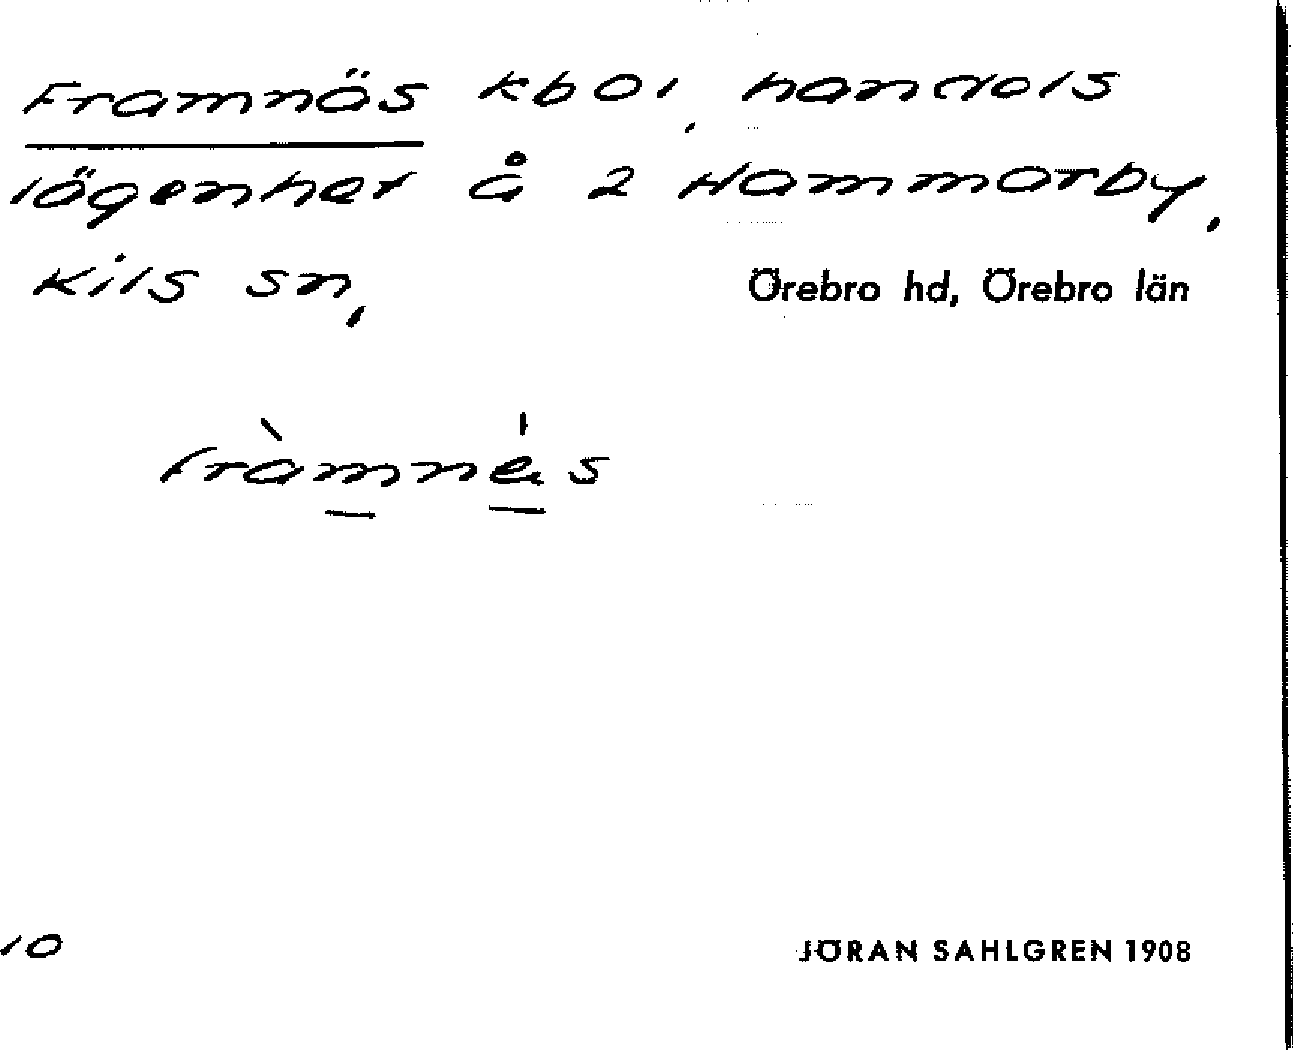 Framnäs kbol, handels
lägenhet å 2 Hammarby,
Kils sn, Örebro hd, Örebro län
fràmnés
10 JÖRAN SAHLGREN 1908